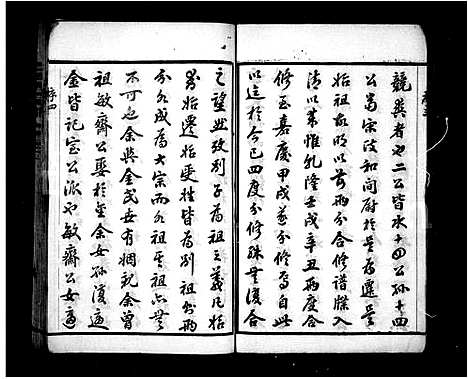 競美者也二公皆水十四公孫十四
公當宋政和間尉於是為遷是
始祖前明以前兩分合修譜牒入
清以來惟乾隆壬戌辛丑兩度合
修至嘉慶甲戌遂分修焉自此
以迄於今已四度分修殊無復合
之望然考別子為祖之義凡始
別始遷始受姓皆為別祖別兩
分各成為大宗而外祖其祖亦無
不可也余與金氏世有姻親余曾
祖敏齋公娶於金余女孫復適
金皆記室公派也敏齋公女適
序四